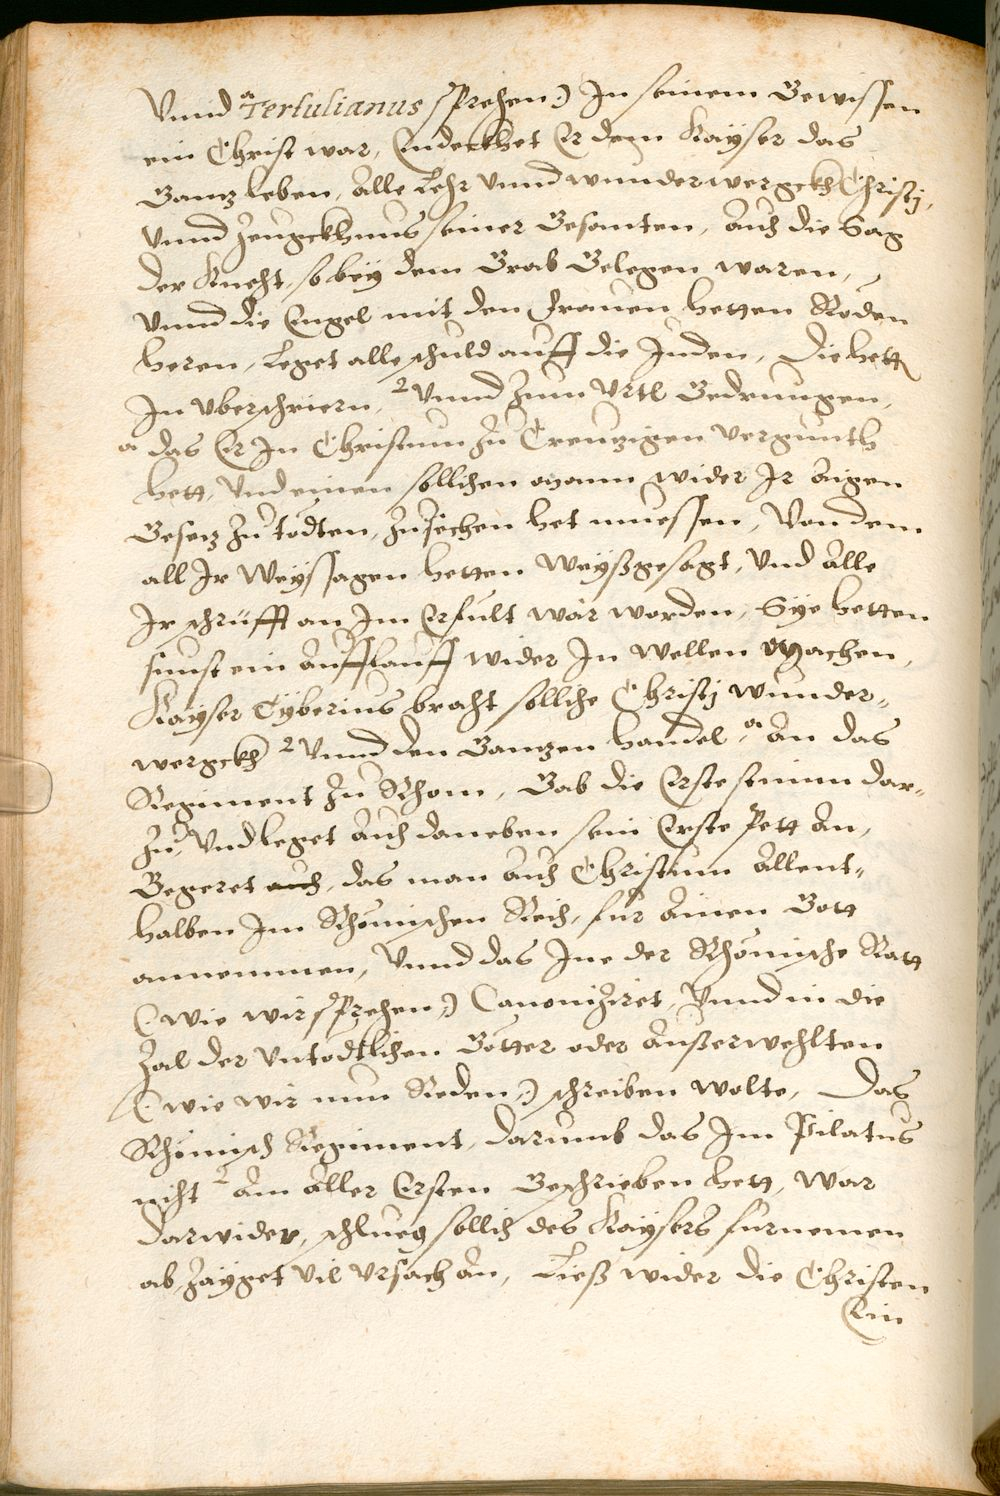 Vnnd ᵃTertulianus sprechen:) In seinem Gewissen
ein Christ war, Endeckhet Er dem Kayser das
Ganz leben, Alle Lehr vnnd wunderwergckh Christj,
vnnd Zeugckhnus seiner Gesanten, Auch die Sag
der Knecht, so bey dem Grab Gelegen waren,
Vnnd die Engel mit den frauen hetten Röden
heren, Leget alle schuld auff die Juden, die hett
In vberschriern, ² Vnnd zum Vrtl Gedrungen,
a das Er In Christum zu Creuzigen vergunth
hett, Vnd einen sollichen mann wider Ir Aigen
Gesez zu tödten, zusechen het muessen, Von dem
all Ir Weyssagen hetten Weyßgesagt, Vnd Alle
Ir schrüfft an Im Erfült wär worden, Sye hetten
sunst ein Aufflauff wider In wellen Machen,
Kayser Tyberius bracht solliche Christj wunder-
wergckh ² Vnnd den Ganzen handel, ᵃ An das
Regiment zu Rhom, Gab die Erste stimm dar-
zu, Vnd leget Auch daneben sein Erste Pett An,
Begeret auch, das man auch Christum Allent-
halben Im Rhömischen Reich, für Ainen Gott
annemmen, Vnnd das Ine der Rhömische Ratt
(:wie wir sprechen:) Canoniziret, Vnnd in die
Zal der Vntödtlichen Götter oder Außerwehlten
(:wie wir nun Reden:) schreiben wolte, Das
Rhömisch Regiment, darumb das Im Pilatus
nicht ² Am Aller Ersten Geschrieben hett, War
darwider, schlueg sollich des Kaysers fürnemen
ab, Zayget Vil Vrsach An, Ließ wider die Christen
Ein